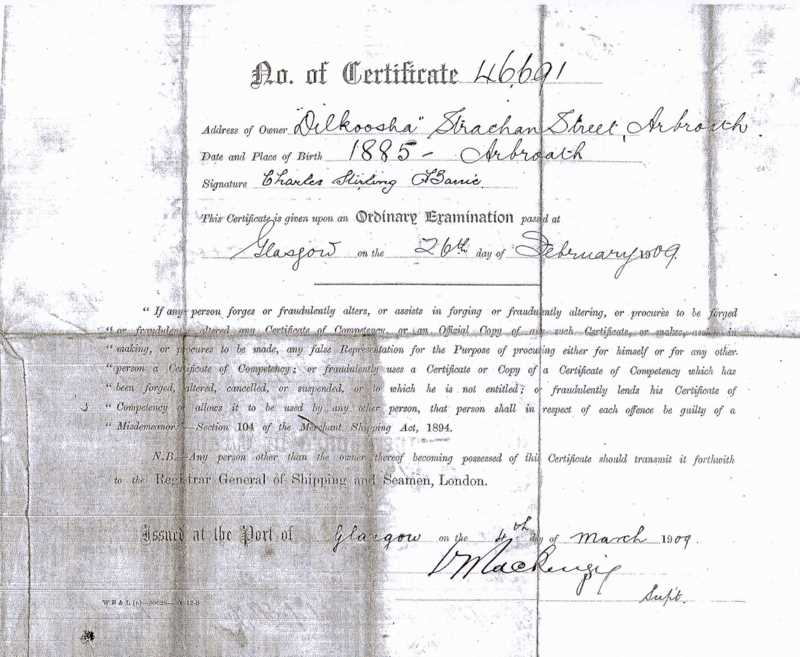 No. of Certificate 46,691
Address of Owner "Dilkoosha" Strachan Street, Arbroath.
Date and Place of Birth 1885 - Arbroath
Signature Charles Stirling
This Certificate is given upon an Ordinary Examination passed at
Glasgow on the 26th day of February 1909.
"If any person forges or fraudulently alters, or assists in forging or fraudulently altering, or procures to be forged
"or fraudulently altered any Certificate of Competency, or an Official Copy of any such Certificate, or makes, assists in
"making, or procures to be made, any false Representation for the Purpose of procuring either for himself or for any other
"person a Certificate of Competency; or fraudulently uses a Certificate or Copy of a Certificate of Competency which has
"been forged, altered, cancelled, or suspended, or to which he is not entitled; or fraudulently lends his Certificate of
"Competency or allows it to be used by any other person, that person shall in respect of each offence be guilty of a
"Misdemeanor."—Section 104 of the Merchant Shipping Act, 1894.
N.B.—Any person other than the owner thereof becoming possessed of this Certificate should transmit it forthwith
to the Registrar General of Shipping and Seamen, London.
Issued at the Port of Glasgow on the 4th day of March 1909.
Mackenzie
Supt.